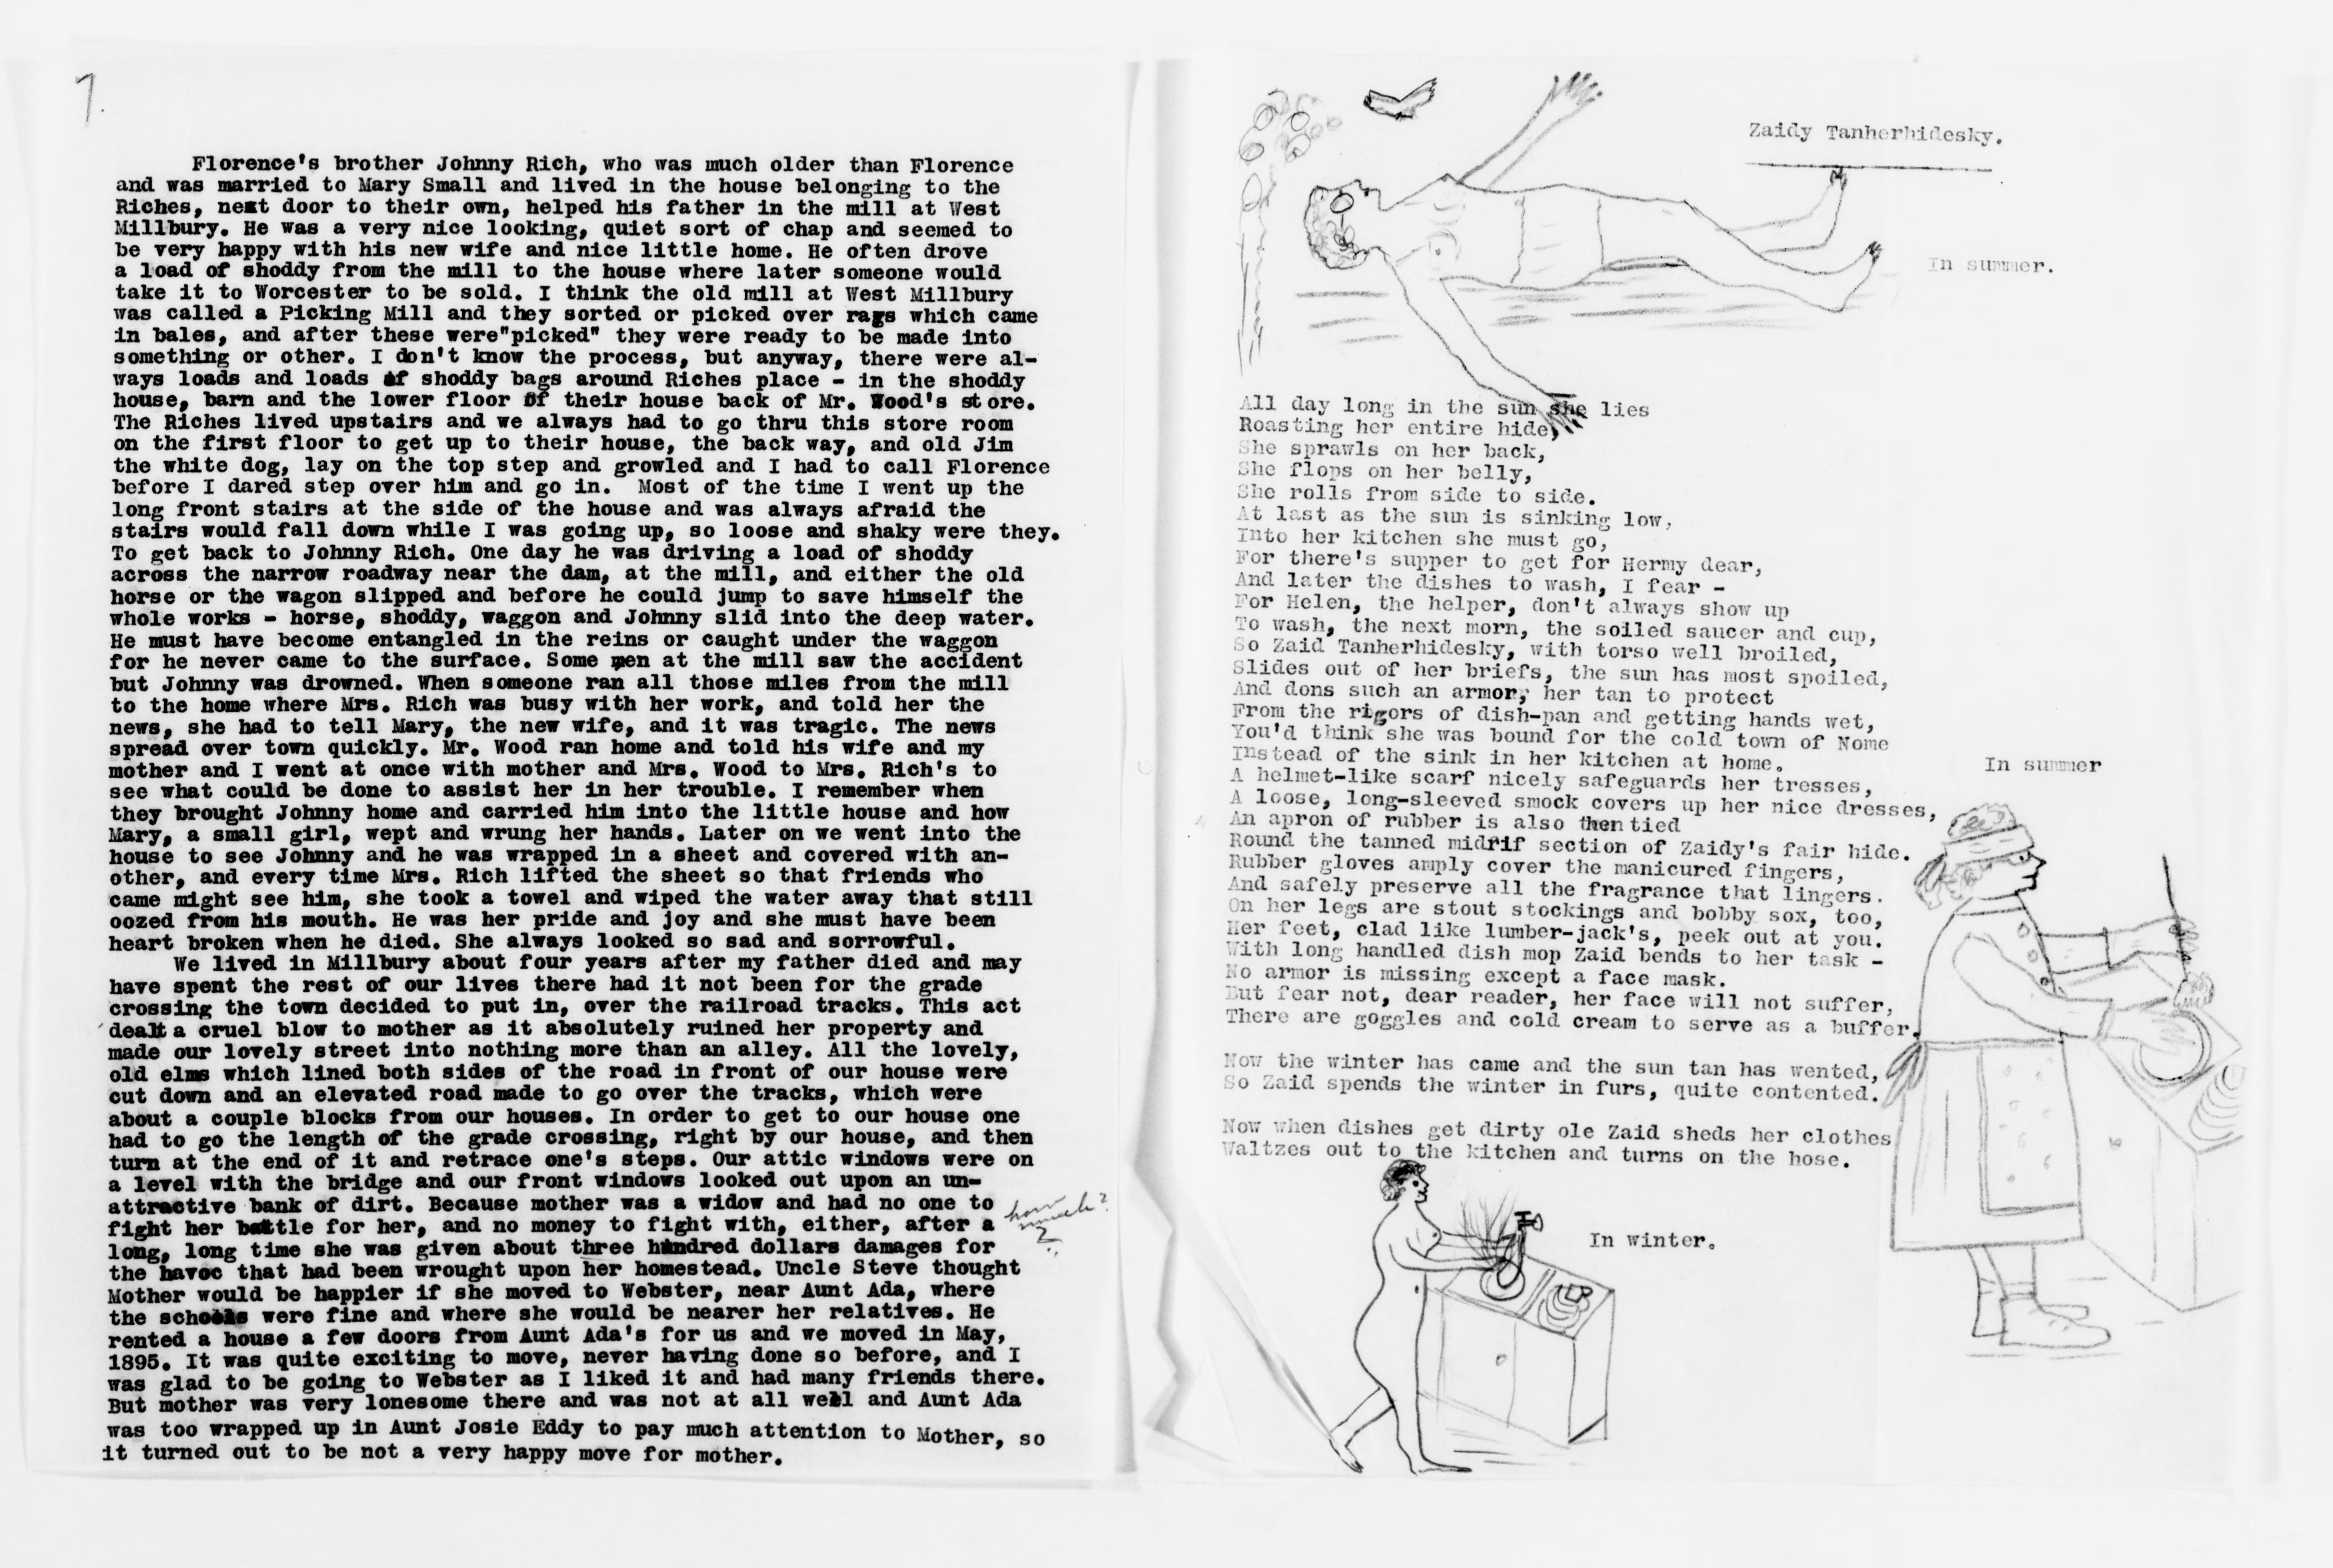 7.
Florence's brother Johnny Rich, who was much older than Florence
and was married to Mary Small and lived in the house belonging to the
Riches, next door to their own, helped his father in the mill at West
Millbury. He was a very nice looking, quiet sort of chap and seemed to
be very happy with his new wife and nice little home. He often drove
a load of shoddy from the mill to the house where later someone would
take it to Worcester to be sold. I think the old mill at West Millbury
was called a Picking Mill and they sorted or picked over rags which came
in bales, and after these were"picked" they were ready to be made into
something or other. I don't know the process, but anyway, there were al-
ways loads and loads of shoddy bags around Riches place - in the shoddy
house, barn and the lower floor of their house back of Mr. Wood's store.
The Riches lived upstairs and we always had to go thru this store room
on the first floor to get up to their house, the back way, and old Jim
the white dog, lay on the top step and growled and I had to call Florence
before I dared step over him and go in. Most of the time I went up the
long front stairs at the side of the house and was always afraid the
stairs would fall down while I was going up, so loose and shaky were they.
To get back to Johnny Rich. One day he was driving a load of shoddy
across the narrow roadway near the dam, at the mill, and either the old
horse or the wagon slipped and before he could jump to save himself the
whole works - horse, shoddy, waggon and Johnny slid into the deep water.
He must have become entangled in the reins or caught under the waggon
for he never came to the surface. Some men at the mill saw the accident
but Johnny was drowned. When someone ran all those miles from the mill
to the home where Mrs. Rich was busy with her work, and told her the
news, she had to tell Mary, the new wife, and it was tragic. The news
spread over town quickly. Mr. Wood ran home and told his wife and my
mother and I went at once with mother and Mrs. Wood to Mrs. Rich's to
see what could be done to assist her in her trouble. I remember when
they brought Johnny home and carried him into the little house and how
Mary, a small girl, wept and wrung her hands. Later on we went into the
house to see Johnny and he was wrapped in a sheet and covered with an-
other, and every time Mrs. Rich lifted the sheet so that friends who
came might see him, she took a towel and wiped the water away that still
oozed from his mouth. He was her pride and joy and she must have been
heart broken when he died. She always looked so sad and sorrowful.
We lived in Millbury about four years after my father died and may
have spent the rest of our lives there had it not been for the grade
crossing the town decided to put in, over the railroad tracks. This act
dealt a cruel blow to mother as it absolutely ruined her property and
made our lovely street into nothing more than an alley. All the lovely,
old elms which lined both sides of the road in front of our house were
cut down and an elevated road made to go over the tracks, which were
about a couple blocks from our houses. In order to get to our house one
had to go the length of the grade crossing, right by our house, and then
turn at the end of it and retrace one's steps. Our attic windows were on
a level with the bridge and our front windows looked out upon an un-
attractive bank of dirt. Because mother was a widow and had no one to
fight her battle for her, and no money to fight with, either, after a
long, long time she was given about three hundred dollars damages for
the havoc that had been wrought upon her homestead. Uncle Steve thought
Mother would be happier if she moved to Webster, near Aunt Ada, where
the schools were fine and where she would be nearer her relatives. He
rented a house a few doors from Aunt Ada's for us and we moved in May,
1895. It was quite exciting to move, never having done so before, and I
was glad to be going to Webster as I liked it and had many friends there.
But mother was very lonesome there and was not at all well and Aunt Ada
was too wrapped up in Aunt Josie Eddy to pay much attention to Mother, so
it turned out to be not a very happy move for mother.
how much?
?
Zaidy Tanherhidesky.
In summer.
All day long in the sun she lies
Roasting her entire hide,
She sprawls on her back,
She flops on her belly,
She rolls from side to side.
At last as the sun is sinking low,
Into her kitchen she must go,
For there's supper to get for Hermy dear,
And later the dishes to wash, I fear -
For Helen, the helper, don't always show up
To wash, the next morn, the soiled saucer and cup,
So Zaid Tanherhidesky, with torso well broiled,
Slides out of her briefs, the sun has most spoiled,
And dons such an armor, her tan to protect
From the rigors of dish-pan and getting hands wet,
You'd think she was bound for the cold town of Nome
Instead of the sink in her kitchen at home.
A helmet-like scarf nicely safeguards her tresses,
A loose, long-sleeved smock covers up her nice dresses,
An apron of rubber is also then tied
Round the tanned midrif section of Zaidy's fair hide.
Rubber gloves amply cover the manicured fingers,
And safely preserve all the fragrance that lingers.
On her legs are stout stockings and bobby sox, too,
Her feet, clad like lumber-jack's, peek out at you.
With long handled dish mop Zaid bends to her task -
No armor is missing except a face mask.
But fear not, dear reader, her face will not suffer,
There are goggles and cold cream to serve as a buffer.
In summer
Now the winter has came and the sun tan has wented,
So Zaid spends the winter in furs, quite contented.
Now when dishes get dirty ole Zaid sheds her clothes
Waltzes out to the kitchen and turns on the hose.
In winter.